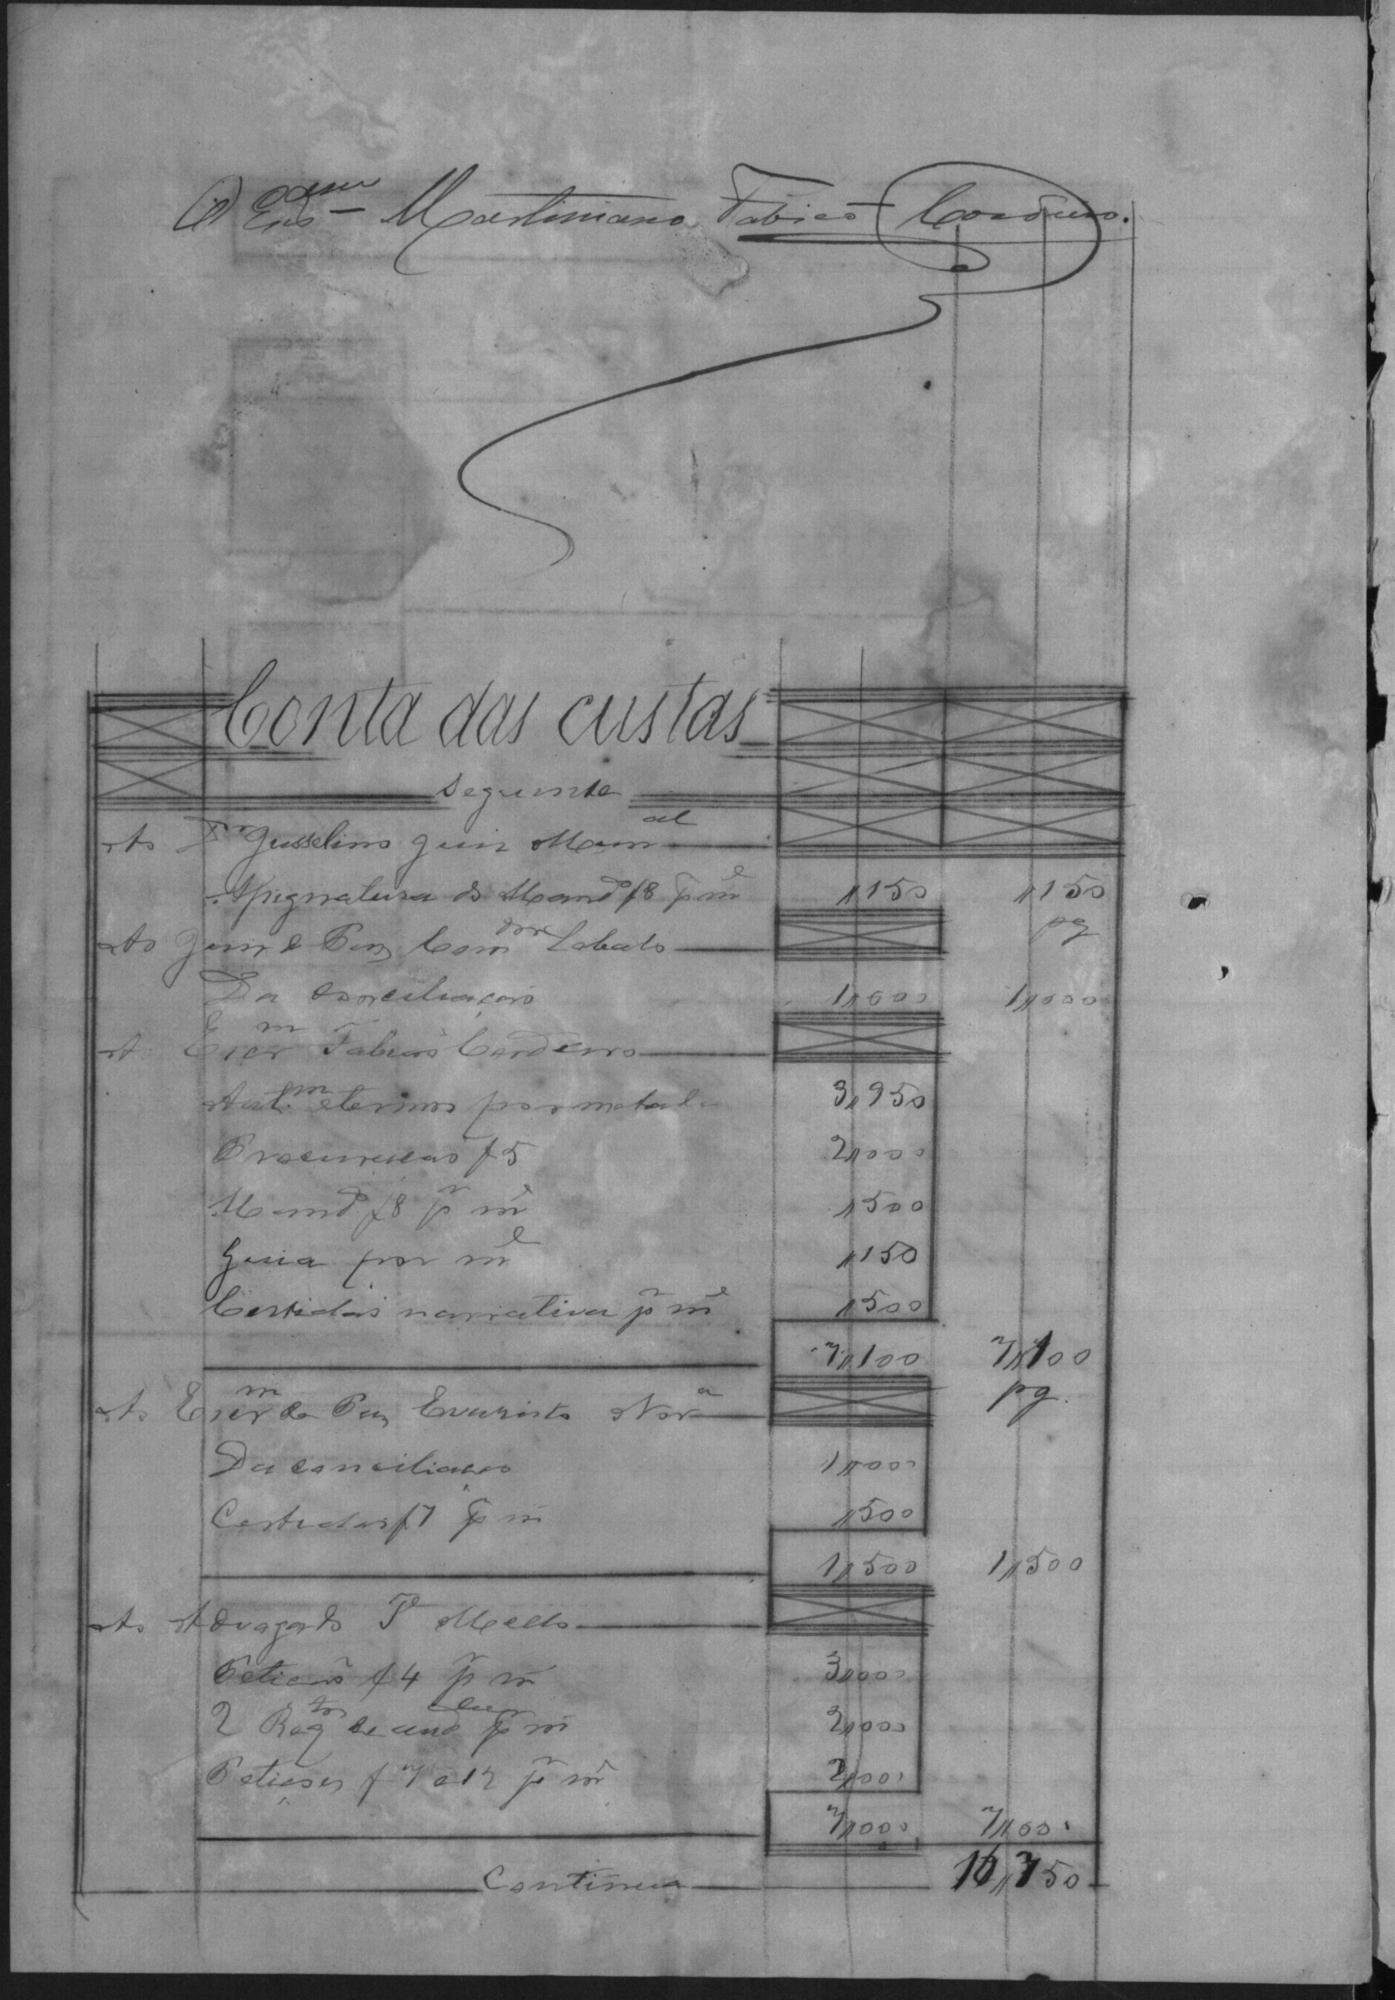 O Esc Martiniano Fabico Cordeiro.
Conta das custas
seguinte
Ao Dr Jusselino juiz Mun al
Assignatura do Mando f 8 pr me 150 150
pg
Ao juiz de Paz Com dor Lobato
Da conciliação 1000 1000
Ao Escr m Fabico Cordeiro
Aut.m e termos por metade 3,950
Procuracão f 5 2000
Mando f 8 pr me 500
Guia por me 150
Certidão narrativa pr me 500
7,100 7,100
Ao Escr m de Paz Evaristo Nor a pg.
Da conciliacão 1000
Certidão f 7 pr m 500
1,500 1,500
Ao Advogado Mello
Peticão f 4 pr m 3000
2 Req de aud pr m 2000
Peticões f 7 e 12 pr m 2000
7,000 7,000
Continua 16,750